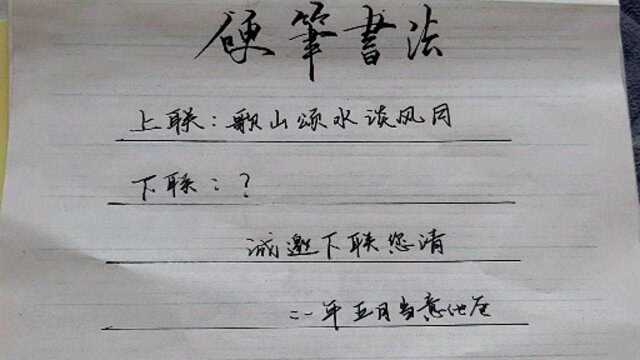 硬筆書法
上联：歌山颂水谈风月
下联：？
诚邀下联您请
二一年五月当意